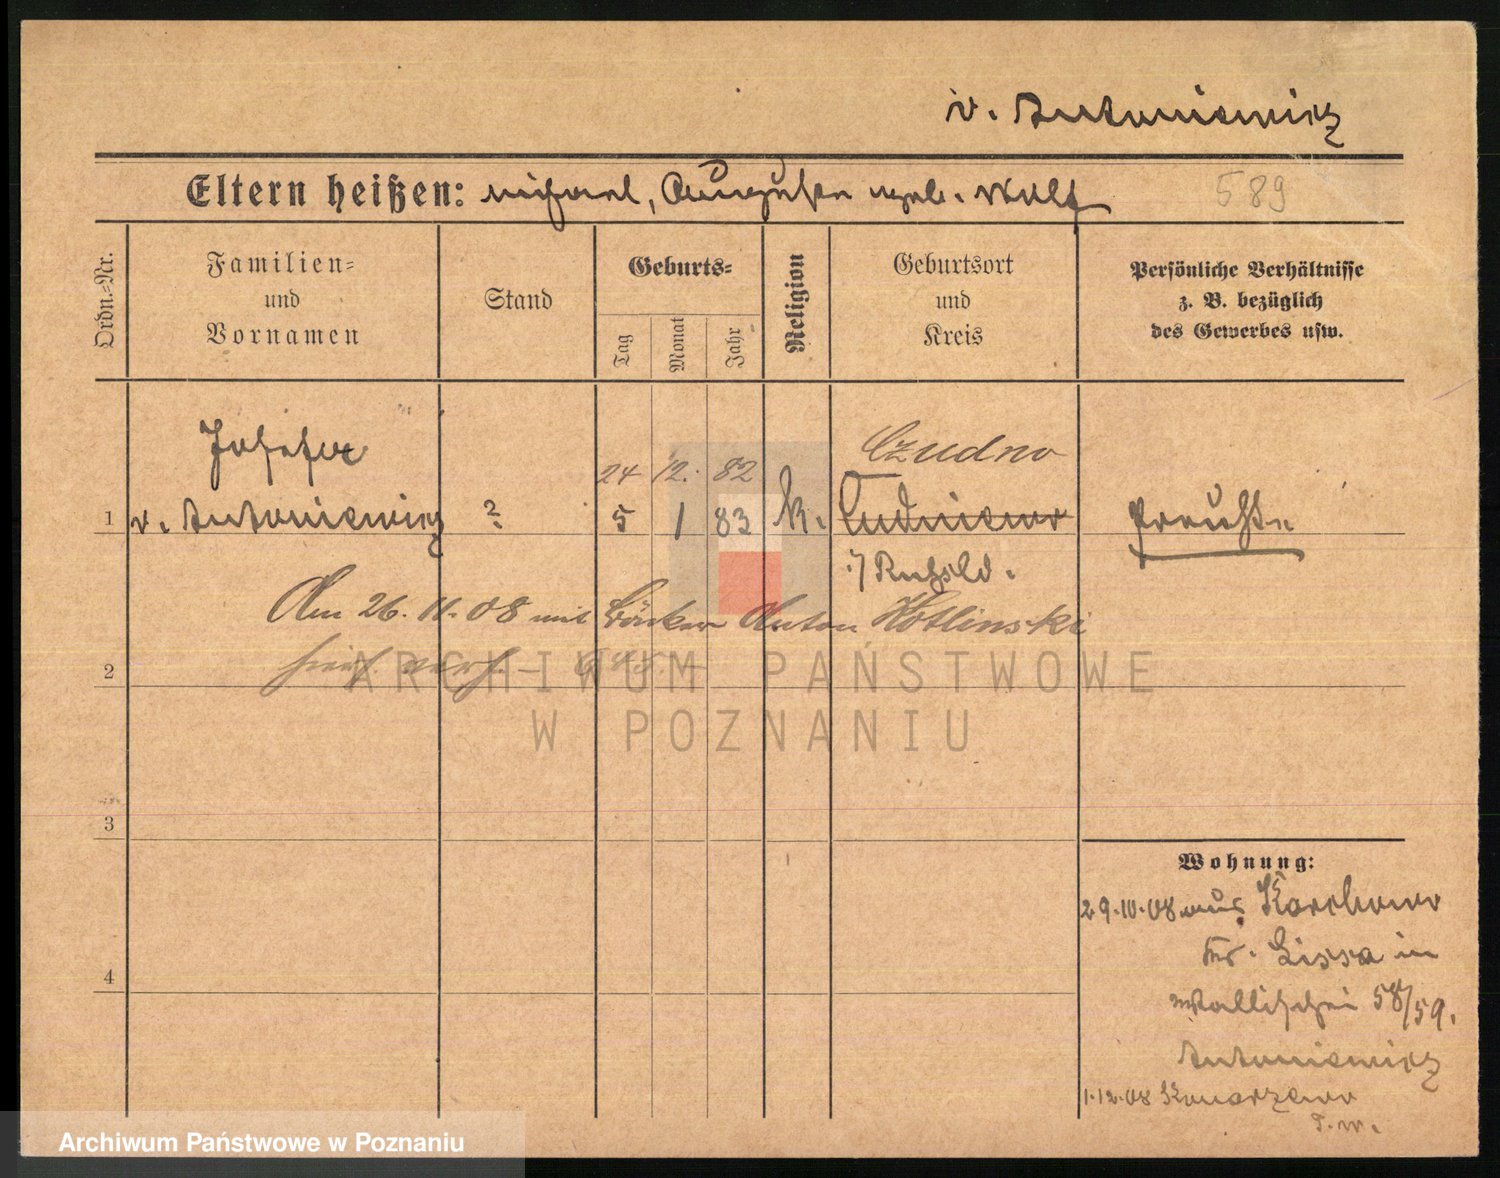 v. Antoniewicz
Eltern heißen: Michael, Auguste geb. Wolf
589
Ordn.-Nr.
Familien-
und
Vornamen
Stand
Geburts-
Tag
Monat
Jahr
Religion
Geburtsort
und
Kreis
Persönliche Verhältnisse
z. B. bezüglich
des Gewerbes usw.
Josefa
24 12. 82
Czudno
1 v. Antoniewicz ? 5 1 83 k. Ludniewo Preuße
Am 26. 11. 08 mit Bäcker Anton Kotlinski
hier verh.
2
ARCHIWUM PAŃSTWOWE
W POZNANIU
3
4
Wohnung:
29.10.08 aus Karchowo
Kr. Lissa in
Wallischei 58/59.
Antoniewicz
1.12.08 Konarzewo
Archiwum Państwowe w Poznaniu